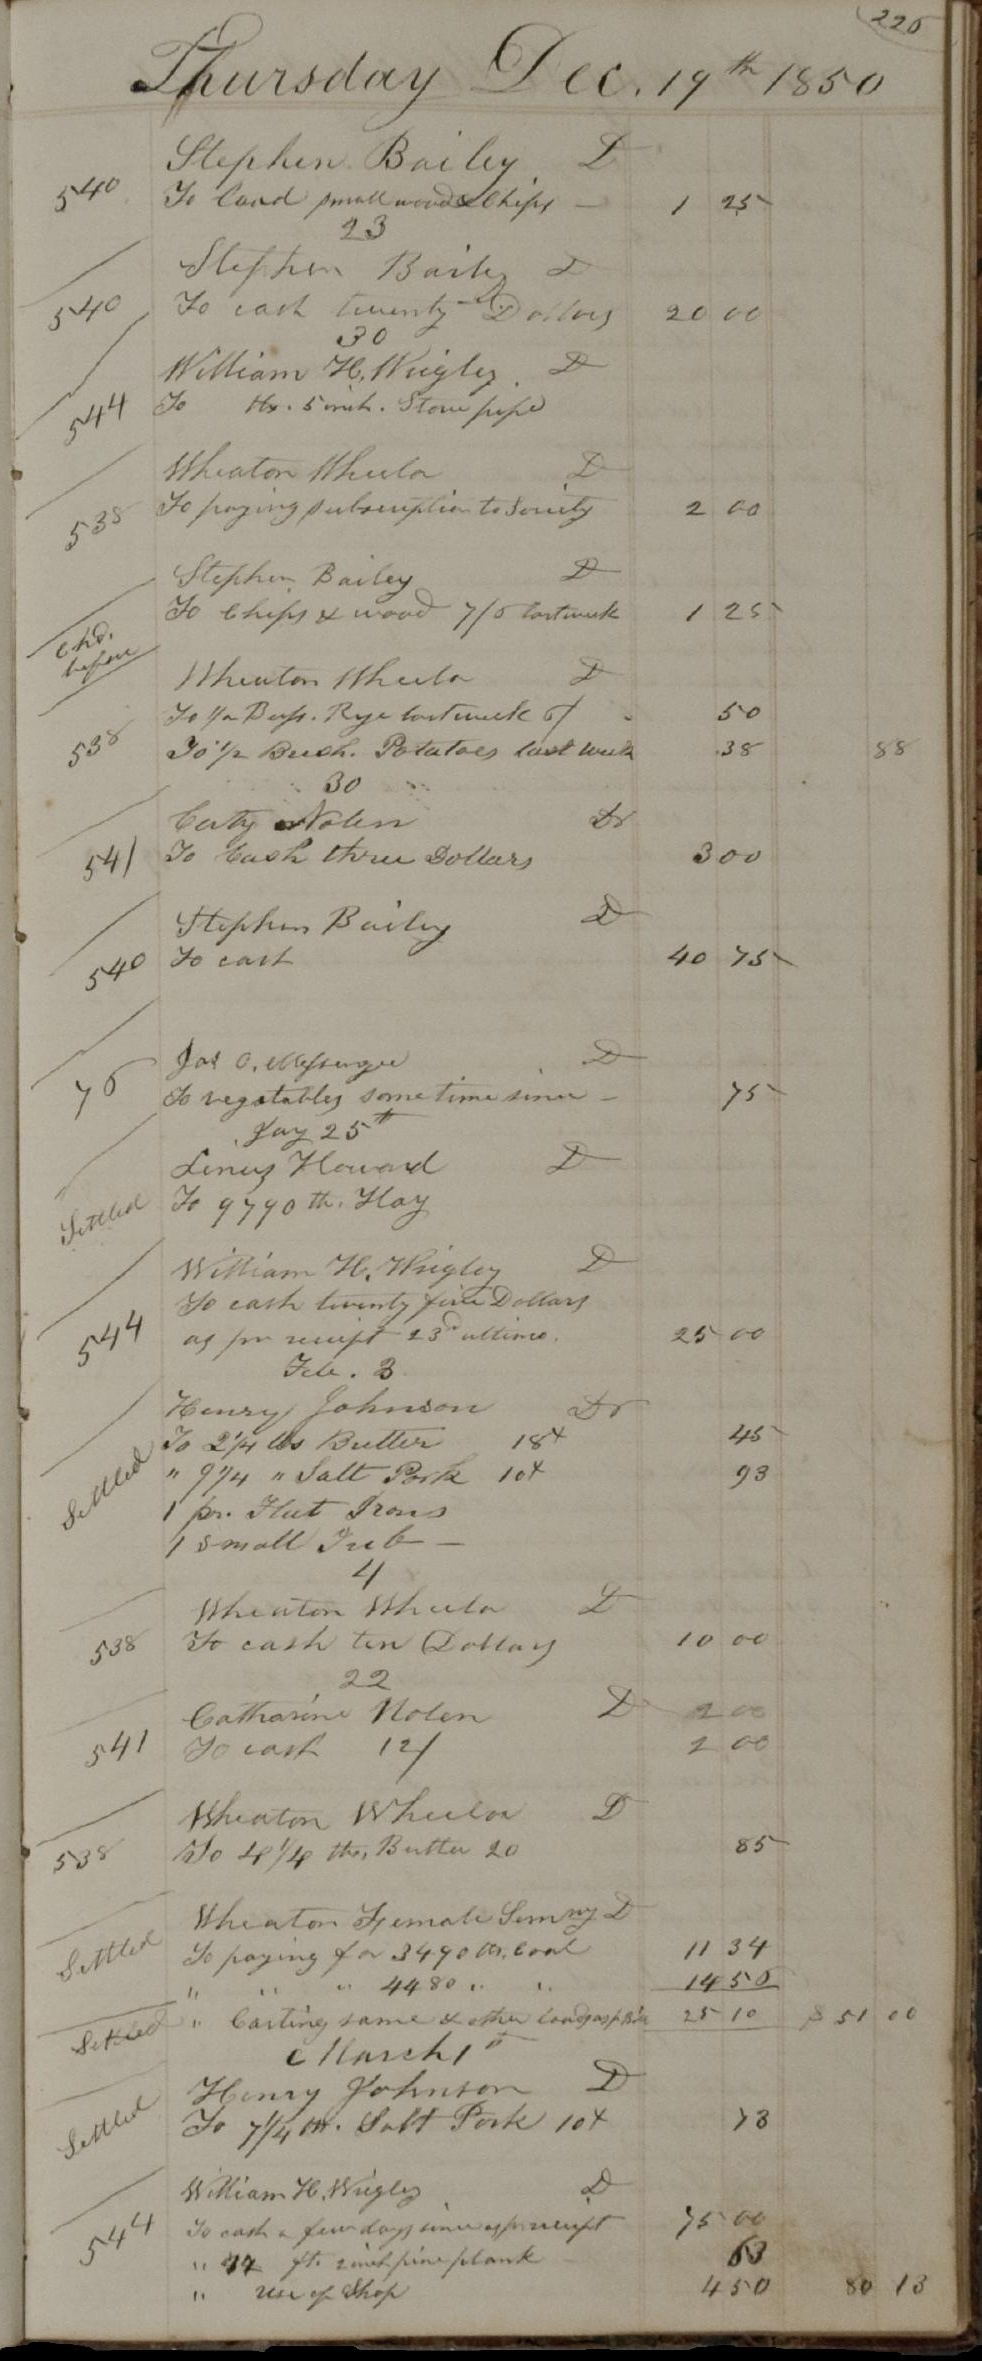 226
Thursday Dec. 19th 1850
Stephen Bailey D
540 To load small wood & Chips — 1 25
23
Stephen Bailey D
540 To cash twenty Dollars 20 00
30
William H. Wrigley. D
544 To lbs. 5 inch. Stove pipe
Wheaton Wheeler D
538 To paying subscription to Society 2 00
Stephen Bailey D
Chd. before To Chips & wood 7/6 last week 1 25
Wheaton Wheeler D
To 1/2 Bush. Rye last week 6/ 50
538 To 1/2 Bush. Potatoes last week 38 88
30
Caty Nolen Dr
541 To Cash three Dollars 3 00
Stephen Bailey D
540 To cash 40 75
Jas O. Messenger D
76 To vegatables some time since — 75
Jay 25th
Linus Howard D
Settled To 9790 lb. Hay
William H. Wrigley D
To cash twenty five Dollars
544 as pr receipt 23d ultimo. 25 00
Feb. 3
Henry Johnson Dr
To 2 1/4 lbs Butter 18 45
Settled " 9 1/4 " Salt Pork 10 93
1 pr. Flat Irons
1 small Tub —
4
Wheaton Wheeler D
538 To cash ten Dollars 10 00
22
Catharine Nolen D 2 00
541 To cash 12/ 2 00
Wheaton Wheeler D
538 To 4 1/4 lbs, Butter 20 85
Wheaton Female Semny D
Settled To paying for 3490 lbs. Coal 11 34
" " " 4480 " " 14 56
Settled " Carting same & other loads as pr Bill 25 10 $ 51 00
March 1st
Henry Johnson D
Settled To 7 1/4 lb. Salt Pork 10 73
William H. Wrigley D
544 To cash a few days since as pr receipt 75 00
" ft. 2 inch pine plank 63
" use of Shop 4 50 80 13